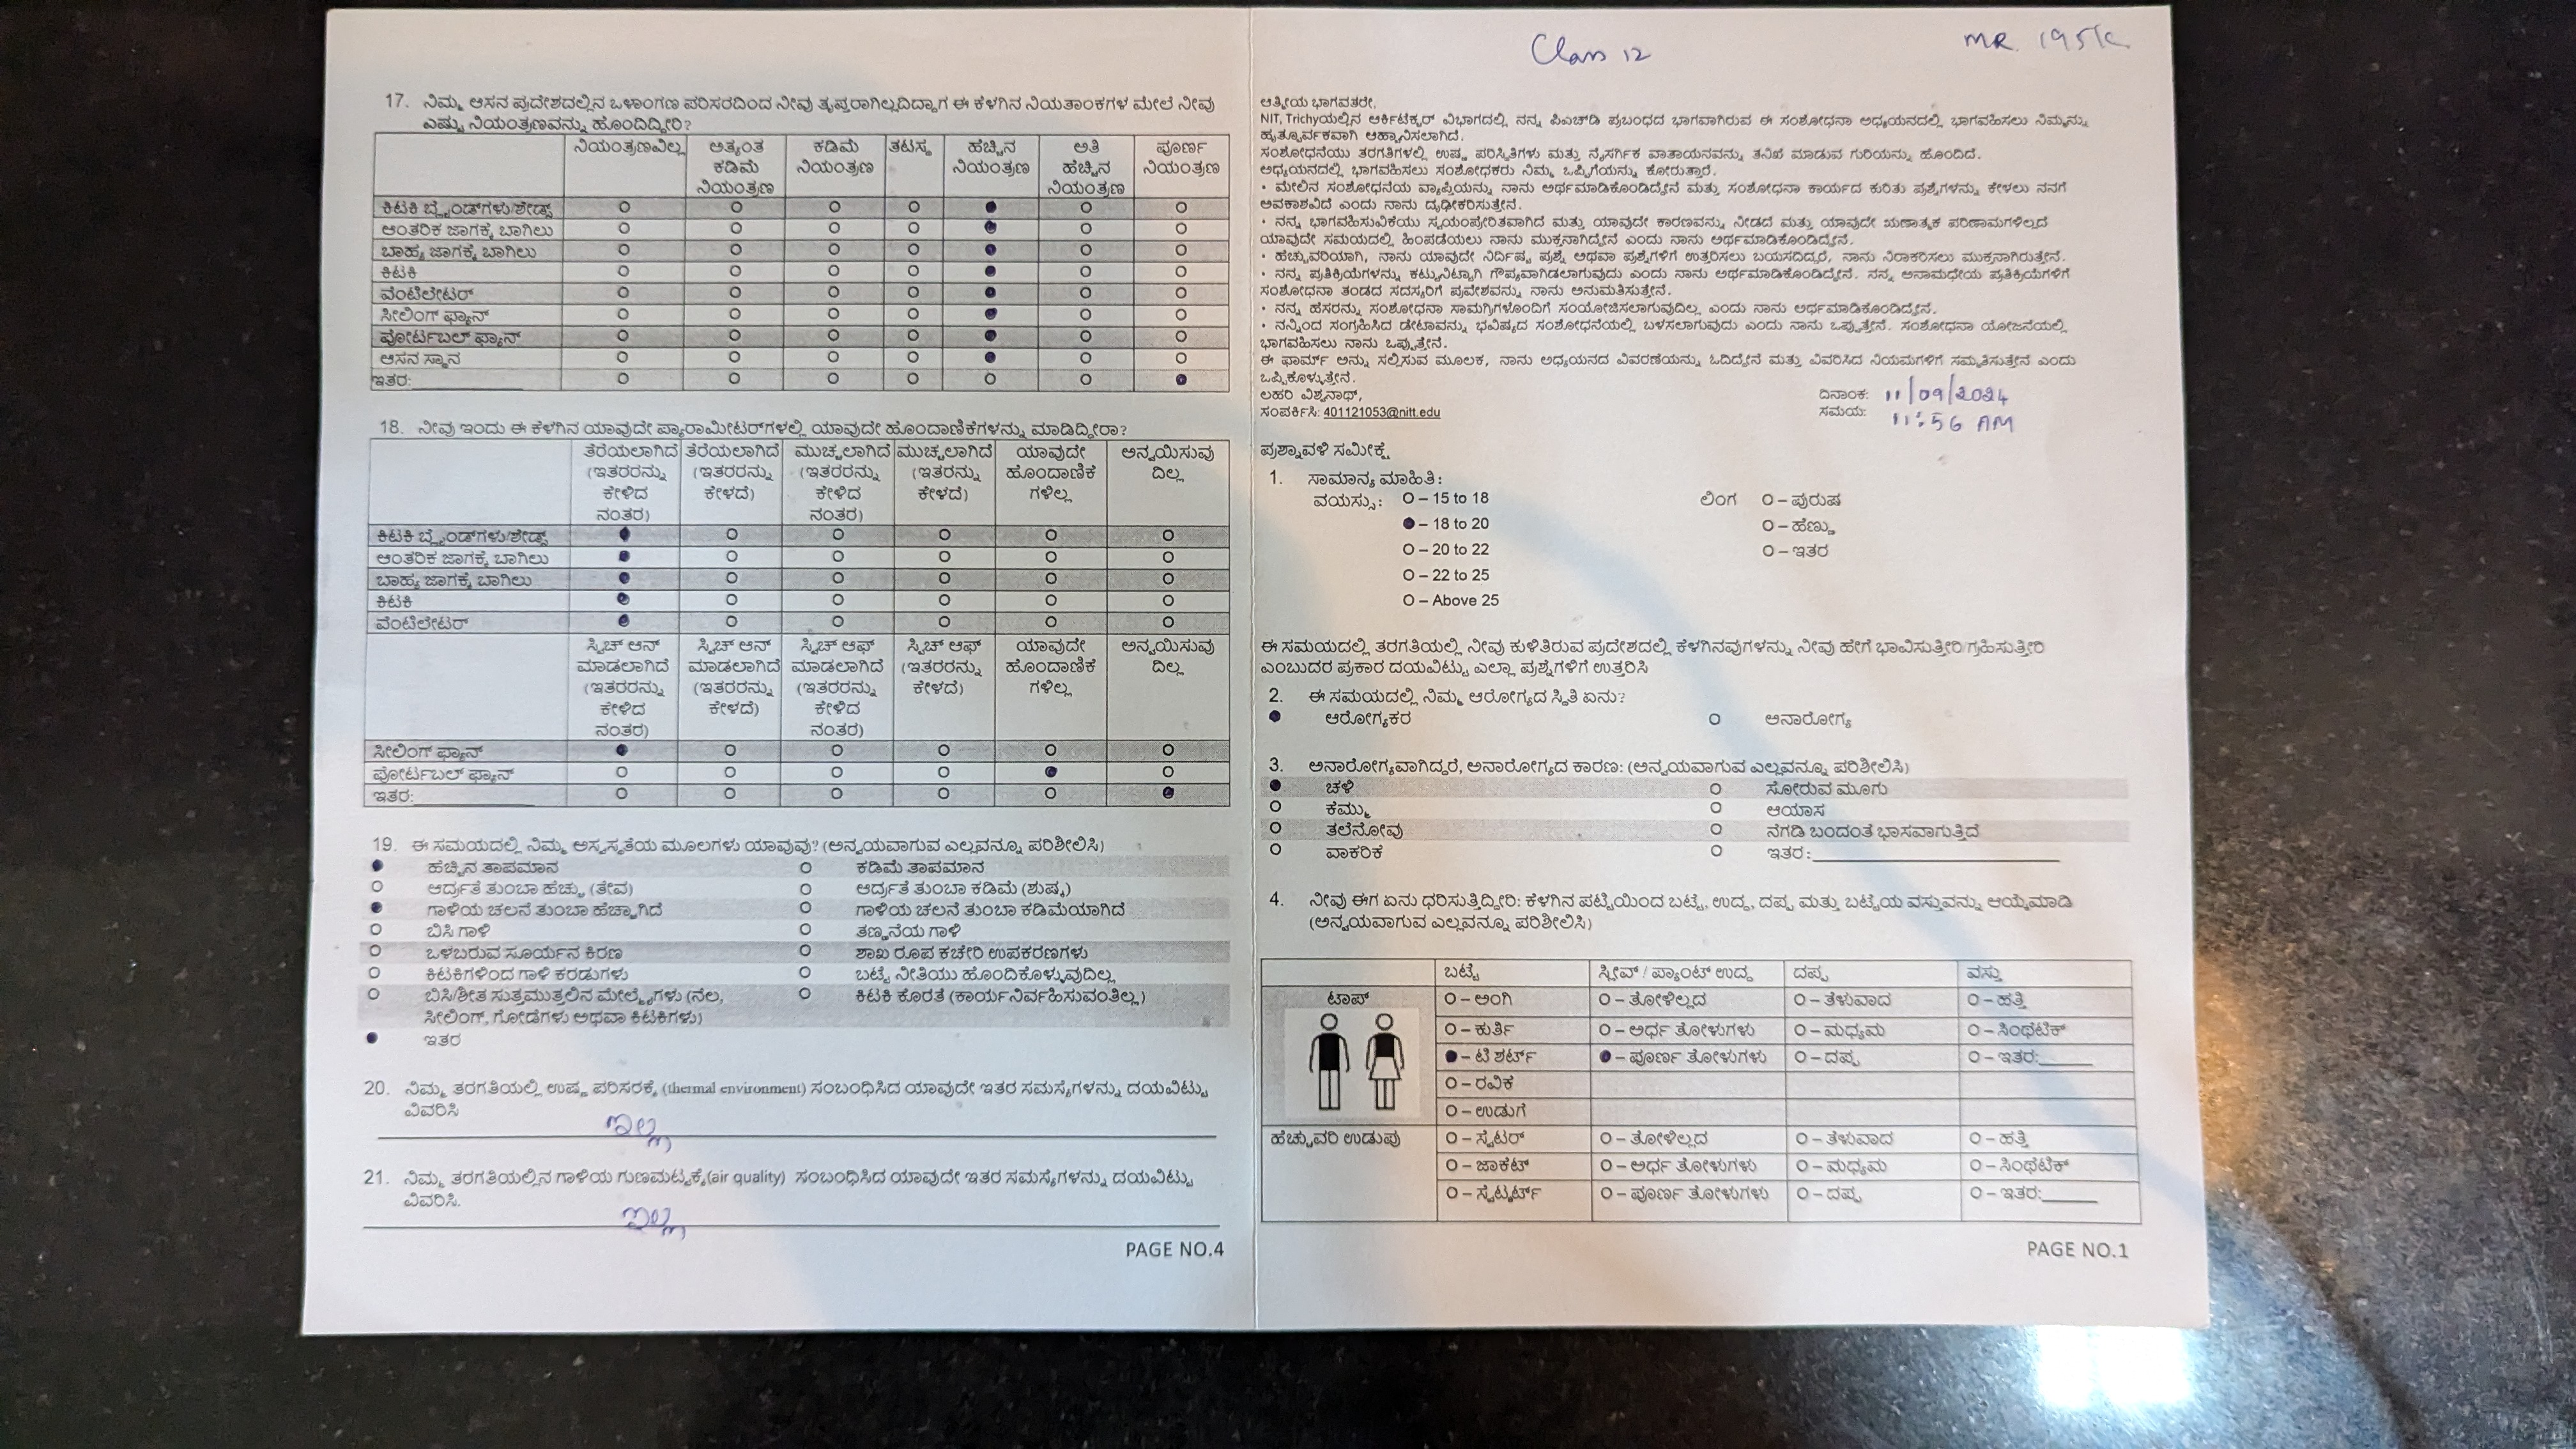 17. ನಿಮ್ಮ ಆಸನ ಪ್ರದೇಶದಲ್ಲಿನ ಒಳಾಂಗಣ ಪರಿಸರದಿಂದ ನೀವು ತೃಪ್ತರಾಗಿಲ್ಲದಿದ್ದಾಗ ಈ ಕೆಳಗಿನ ನಿಯತಾಂಕಗಳ ಮೇಲೆ ನೀವು
ಎಷ್ಟು ನಿಯಂತ್ರಣವನ್ನು ಹೊಂದಿದ್ದೀರಿ?
ನಿಯಂತ್ರಣವಿಲ್ಲ ಅತ್ಯಂತ ಕಡಿಮೆ ನಿಯಂತ್ರಣ ಕಡಿಮೆ ನಿಯಂತ್ರಣ ತಟಸ್ಥ ಹೆಚ್ಚಿನ ನಿಯಂತ್ರಣ ಅತಿ ಹೆಚ್ಚಿನ ನಿಯಂತ್ರಣ ಪೂರ್ಣ ನಿಯಂತ್ರಣ
ಕಿಟಕಿ ಬ್ಲೈಂಡ್‌ಗಳು/ಶೇಡ್ಸ್
ಆಂತರಿಕ ಜಾಗಕ್ಕೆ ಬಾಗಿಲು
ಬಾಹ್ಯ ಜಾಗಕ್ಕೆ ಬಾಗಿಲು
ಕಿಟಕಿ
ವೆಂಟಿಲೇಟರ್
ಸೀಲಿಂಗ್ ಫ್ಯಾನ್
ಪೋರ್ಟಬಲ್ ಫ್ಯಾನ್
ಆಸನ ಸ್ಥಾನ
ಇತರ:
18. ನೀವು ಇಂದು ಈ ಕೆಳಗಿನ ಯಾವುದೇ ಪ್ಯಾರಾಮೀಟರ್‌ಗಳಲ್ಲಿ ಯಾವುದೇ ಹೊಂದಾಣಿಕೆಗಳನ್ನು ಮಾಡಿದ್ದೀರಾ?
ತೆರೆಯಲಾಗಿದೆ (ಇತರರನ್ನು ಕೇಳಿದ ನಂತರ) ತೆರೆಯಲಾಗಿದೆ (ಇತರರನ್ನು ಕೇಳದೆ) ಮುಚ್ಚಲಾಗಿದೆ (ಇತರರನ್ನು ಕೇಳಿದ ನಂತರ) ಮುಚ್ಚಲಾಗಿದೆ (ಇತರರನ್ನು ಕೇಳದೆ) ಯಾವುದೇ ಹೊಂದಾಣಿಕೆ ಗಳಿಲ್ಲ ಅನ್ವಯಿಸುವು ದಿಲ್ಲ
ಕಿಟಕಿ ಬ್ಲೈಂಡ್‌ಗಳು/ಶೇಡ್ಸ್
ಆಂತರಿಕ ಜಾಗಕ್ಕೆ ಬಾಗಿಲು
ಬಾಹ್ಯ ಜಾಗಕ್ಕೆ ಬಾಗಿಲು
ಕಿಟಕಿ
ವೆಂಟಿಲೇಟರ್
ಸ್ವಿಚ್ ಆನ್ ಮಾಡಲಾಗಿದೆ (ಇತರರನ್ನು ಕೇಳಿದ ನಂತರ) ಸ್ವಿಚ್ ಆನ್ ಮಾಡಲಾಗಿದೆ (ಇತರರನ್ನು ಕೇಳದೆ) ಸ್ವಿಚ್ ಆಫ್ ಮಾಡಲಾಗಿದೆ (ಇತರರನ್ನು ಕೇಳಿದ ನಂತರ) ಸ್ವಿಚ್ ಆಫ್ (ಇತರರನ್ನು ಕೇಳದೆ) ಯಾವುದೇ ಹೊಂದಾಣಿಕೆ ಗಳಿಲ್ಲ ಅನ್ವಯಿಸುವು ದಿಲ್ಲ
ಸೀಲಿಂಗ್ ಫ್ಯಾನ್
ಪೋರ್ಟಬಲ್ ಫ್ಯಾನ್
ಇತರ:
19. ಈ ಸಮಯದಲ್ಲಿ ನಿಮ್ಮ ಅಸ್ವಸ್ಥತೆಯ ಮೂಲಗಳು ಯಾವುವು? (ಅನ್ವಯವಾಗುವ ಎಲ್ಲವನ್ನೂ ಪರಿಶೀಲಿಸಿ)
ಹೆಚ್ಚಿನ ತಾಪಮಾನ ಕಡಿಮೆ ತಾಪಮಾನ
ಆರ್ದ್ರತೆ ತುಂಬಾ ಹೆಚ್ಚು (ತೇವ) ಆರ್ದ್ರತೆ ತುಂಬಾ ಕಡಿಮೆ (ಶುಷ್ಕ)
ಗಾಳಿಯ ಚಲನೆ ತುಂಬಾ ಹೆಚ್ಚಾಗಿದೆ ಗಾಳಿಯ ಚಲನೆ ತುಂಬಾ ಕಡಿಮೆಯಾಗಿದೆ
ಬಿಸಿ ಗಾಳಿ ತಣ್ಣನೆಯ ಗಾಳಿ
ಒಳಬರುವ ಸೂರ್ಯನ ಕಿರಣ ಶಾಖ ರೂಪ ಕಚೇರಿ ಉಪಕರಣಗಳು
ಕಿಟಕಿಗಳಿಂದ ಗಾಳಿ ಕರಡುಗಳು ಬಟ್ಟೆ ನೀತಿಯು ಹೊಂದಿಕೊಳ್ಳುವುದಿಲ್ಲ
ಬಿಸಿ/ಶೀತ ಸುತ್ತಮುತ್ತಲಿನ ಮೇಲ್ಮೈಗಳು (ನೆಲ, ಕಿಟಕಿ ಕೊರತೆ (ಕಾರ್ಯನಿರ್ವಹಿಸುವಂತಿಲ್ಲ)
ಸೀಲಿಂಗ್, ಗೋಡೆಗಳು ಅಥವಾ ಕಿಟಕಿಗಳು)
ಇತರ
20. ನಿಮ್ಮ ತರಗತಿಯಲ್ಲಿ ಉಷ್ಣ ಪರಿಸರಕ್ಕೆ (thermal environment) ಸಂಬಂಧಿಸಿದ ಯಾವುದೇ ಇತರ ಸಮಸ್ಯೆಗಳನ್ನು ದಯವಿಟ್ಟು
ವಿವರಿಸಿ
ಇಲ್ಲ
21. ನಿಮ್ಮ ತರಗತಿಯಲ್ಲಿನ ಗಾಳಿಯ ಗುಣಮಟ್ಟಕ್ಕೆ(air quality) ಸಂಬಂಧಿಸಿದ ಯಾವುದೇ ಇತರ ಸಮಸ್ಯೆಗಳನ್ನು ದಯವಿಟ್ಟು
ವಿವರಿಸಿ.
ಇಲ್ಲ
PAGE NO.4
Class 12
ಆತ್ಮೀಯ ಭಾಗವತರೇ,
NIT, Trichyಯಲ್ಲಿನ ಆರ್ಕಿಟೆಕ್ಚರ್ ವಿಭಾಗದಲ್ಲಿ ನನ್ನ ಪಿಎಚ್‌ಡಿ ಪ್ರಬಂಧದ ಭಾಗವಾಗಿರುವ ಈ ಸಂಶೋಧನಾ ಅಧ್ಯಯನದಲ್ಲಿ ಭಾಗವಹಿಸಲು ನಿಮ್ಮನ್ನು
ಹೃತ್ಪೂರ್ವಕವಾಗಿ ಆಹ್ವಾನಿಸಲಾಗಿದೆ.
ಸಂಶೋಧನೆಯು ತರಗತಿಗಳಲ್ಲಿ ಉಷ್ಣ ಪರಿಸ್ಥಿತಿಗಳು ಮತ್ತು ನೈಸರ್ಗಿಕ ವಾತಾಯನವನ್ನು ತನಿಖೆ ಮಾಡುವ ಗುರಿಯನ್ನು ಹೊಂದಿದೆ.
ಅಧ್ಯಯನದಲ್ಲಿ ಭಾಗವಹಿಸಲು ಸಂಶೋಧಕರು ನಿಮ್ಮ ಒಪ್ಪಿಗೆಯನ್ನು ಕೋರುತ್ತಾರೆ.
• ಮೇಲಿನ ಸಂಶೋಧನೆಯ ವ್ಯಾಪ್ತಿಯನ್ನು ನಾನು ಅರ್ಥಮಾಡಿಕೊಂಡಿದ್ದೇನೆ ಮತ್ತು ಸಂಶೋಧನಾ ಕಾರ್ಯದ ಕುರಿತು ಪ್ರಶ್ನೆಗಳನ್ನು ಕೇಳಲು ನನಗೆ
ಅವಕಾಶವಿದೆ ಎಂದು ನಾನು ದೃಢೀಕರಿಸುತ್ತೇನೆ.
• ನನ್ನ ಭಾಗವಹಿಸುವಿಕೆಯು ಸ್ವಯಂಪ್ರೇರಿತವಾಗಿದೆ ಮತ್ತು ಯಾವುದೇ ಕಾರಣವನ್ನು ನೀಡದೆ ಮತ್ತು ಯಾವುದೇ ಋಣಾತ್ಮಕ ಪರಿಣಾಮಗಳಿಲ್ಲದೆ
ಯಾವುದೇ ಸಮಯದಲ್ಲಿ ಹಿಂಪಡೆಯಲು ನಾನು ಮುಕ್ತನಾಗಿದ್ದೇನೆ ಎಂದು ನಾನು ಅರ್ಥಮಾಡಿಕೊಂಡಿದ್ದೇನೆ.
• ಹೆಚ್ಚುವರಿಯಾಗಿ, ನಾನು ಯಾವುದೇ ನಿರ್ದಿಷ್ಟ ಪ್ರಶ್ನೆ ಅಥವಾ ಪ್ರಶ್ನೆಗಳಿಗೆ ಉತ್ತರಿಸಲು ಬಯಸದಿದ್ದರೆ, ನಾನು ನಿರಾಕರಿಸಲು ಮುಕ್ತನಾಗಿರುತ್ತೇನೆ.
• ನನ್ನ ಪ್ರತಿಕ್ರಿಯೆಗಳನ್ನು ಕಟ್ಟುನಿಟ್ಟಾಗಿ ಗೌಪ್ಯವಾಗಿಡಲಾಗುವುದು ಎಂದು ನಾನು ಅರ್ಥಮಾಡಿಕೊಂಡಿದ್ದೇನೆ. ನನ್ನ ಅನಾಮಧೇಯ ಪ್ರತಿಕ್ರಿಯೆಗಳಿಗೆ
ಸಂಶೋಧನಾ ತಂಡದ ಸದಸ್ಯರಿಗೆ ಪ್ರವೇಶವನ್ನು ನಾನು ಅನುಮತಿಸುತ್ತೇನೆ.
• ನನ್ನ ಹೆಸರನ್ನು ಸಂಶೋಧನಾ ಸಾಮಗ್ರಿಗಳೊಂದಿಗೆ ಸಂಯೋಜಿಸಲಾಗುವುದಿಲ್ಲ ಎಂದು ನಾನು ಅರ್ಥಮಾಡಿಕೊಂಡಿದ್ದೇನೆ.
• ನನ್ನಿಂದ ಸಂಗ್ರಹಿಸಿದ ಡೇಟಾವನ್ನು ಭವಿಷ್ಯದ ಸಂಶೋಧನೆಯಲ್ಲಿ ಬಳಸಲಾಗುವುದು ಎಂದು ನಾನು ಒಪ್ಪುತ್ತೇನೆ. ಸಂಶೋಧನಾ ಯೋಜನೆಯಲ್ಲಿ
ಭಾಗವಹಿಸಲು ನಾನು ಒಪ್ಪುತ್ತೇನೆ.
ಈ ಫಾರ್ಮ್ ಅನ್ನು ಸಲ್ಲಿಸುವ ಮೂಲಕ, ನಾನು ಅಧ್ಯಯನದ ವಿವರಣೆಯನ್ನು ಓದಿದ್ದೇನೆ ಮತ್ತು ವಿವರಿಸಿದ ನಿಯಮಗಳಿಗೆ ಸಮ್ಮತಿಸುತ್ತೇನೆ ಎಂದು
ಒಪ್ಪಿಕೊಳ್ಳುತ್ತೇನೆ.
ಲಹರಿ ವಿಶ್ವನಾಥ್, ದಿನಾಂಕ: 11/09/2024
ಸಂಪರ್ಕಿಸಿ: 401121053@nitt.edu ಸಮಯ: 11:56 AM
ಪ್ರಶ್ನಾವಳಿ ಸಮೀಕ್ಷೆ
1. ಸಾಮಾನ್ಯ ಮಾಹಿತಿ:
ವಯಸ್ಸು: O – 15 to 18 ಲಿಂಗ O – ಪುರುಷ
– 18 to 20 O – ಹೆಣ್ಣು
O – 20 to 22 O – ಇತರ
O – 22 to 25
O – Above 25
ಈ ಸಮಯದಲ್ಲಿ ತರಗತಿಯಲ್ಲಿ ನೀವು ಕುಳಿತಿರುವ ಪ್ರದೇಶದಲ್ಲಿ ಕೆಳಗಿನವುಗಳನ್ನು ನೀವು ಹೇಗೆ ಭಾವಿಸುತ್ತೀರಿ/ಗ್ರಹಿಸುತ್ತೀರಿ
ಎಂಬುದರ ಪ್ರಕಾರ ದಯವಿಟ್ಟು ಎಲ್ಲಾ ಪ್ರಶ್ನೆಗಳಿಗೆ ಉತ್ತರಿಸಿ
2. ಈ ಸಮಯದಲ್ಲಿ ನಿಮ್ಮ ಆರೋಗ್ಯದ ಸ್ಥಿತಿ ಏನು?
ಆರೋಗ್ಯಕರ ಅನಾರೋಗ್ಯ
3. ಅನಾರೋಗ್ಯವಾಗಿದ್ದರೆ, ಅನಾರೋಗ್ಯದ ಕಾರಣ: (ಅನ್ವಯವಾಗುವ ಎಲ್ಲವನ್ನೂ ಪರಿಶೀಲಿಸಿ)
ಚಳಿ ಸೋರುವ ಮೂಗು
ಕೆಮ್ಮು ಆಯಾಸ
ತಲೆನೋವು ನೆಗಡಿ ಬಂದಂತೆ ಭಾಸವಾಗುತ್ತಿದೆ
ವಾಕರಿಕೆ ಇತರ:
4. ನೀವು ಈಗ ಏನು ಧರಿಸುತ್ತಿದ್ದೀರಿ: ಕೆಳಗಿನ ಪಟ್ಟಿಯಿಂದ ಬಟ್ಟೆ, ಉದ್ದ, ದಪ್ಪ ಮತ್ತು ಬಟ್ಟೆಯ ವಸ್ತುವನ್ನು ಆಯ್ಕೆಮಾಡಿ
(ಅನ್ವಯವಾಗುವ ಎಲ್ಲವನ್ನೂ ಪರಿಶೀಲಿಸಿ)
ಬಟ್ಟೆ ಸ್ಲೀವ್ / ಪ್ಯಾಂಟ್ ಉದ್ದ ದಪ್ಪ ವಸ್ತು
ಟಾಪ್ O – ಅಂಗಿ O – ತೋಳಿಲ್ಲದ O – ತೆಳುವಾದ O – ಹತ್ತಿ
O – ಕುರ್ತಿ O – ಅರ್ಧ ತೋಳುಗಳು O – ಮಧ್ಯಮ O – ಸಿಂಥೆಟಿಕ್
– ಟಿ ಶರ್ಟ್ – ಪೂರ್ಣ ತೋಳುಗಳು O – ದಪ್ಪ O – ಇತರ:
O – ರವಿಕೆ
O – ಉಡುಗೆ
ಹೆಚ್ಚುವರಿ ಉಡುಪು O – ಸ್ವೆಟರ್ O – ತೋಳಿಲ್ಲದ O – ತೆಳುವಾದ O – ಹತ್ತಿ
O – ಜಾಕೆಟ್ O – ಅರ್ಧ ತೋಳುಗಳು O – ಮಧ್ಯಮ O – ಸಿಂಥೆಟಿಕ್
O – ಸ್ವೆಟ್ಶರ್ಟ್ O – ಪೂರ್ಣ ತೋಳುಗಳು O – ದಪ್ಪ O – ಇತರ:
PAGE NO.1